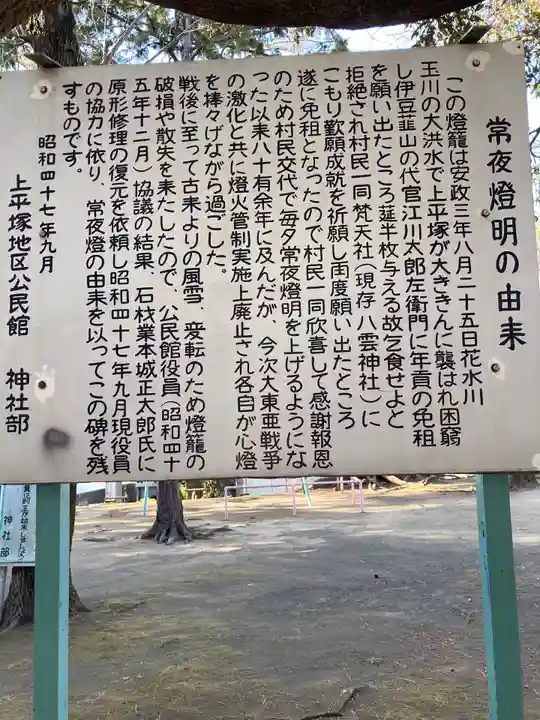 常夜燈明の由来
この燈籠は安政三年八月二十五日花水川
玉川の大洪水で上平塚が大ききんに襲はれ困窮
し伊豆韮山の代官江川太郎左衛門に年貢の免租
を願い出たところ莚半枚与える故乞食せよと
拒絶され村民一同梵天社(現存八雲神社)に
こもり歎願成就を祈願し再度願い出たところ
遂に免租となったので村民一同欣喜して感謝報恩
のため村民交代で毎夕常夜燈明を上げるようにな
った以来八十有余年に及んだが、今次大東亜戦争
の激化と共に燈火管制実施上廃止され各自が心燈
を捧々げながら過ごした。
戦後に至って古来よりの風雪、変転のため燈籠の
破損や散失を来たしたので、公民館役員(昭和四十
五年十二月)協議の結果、石材業本城正太郎氏に
原形修理の復元を依頼し昭和四十七年九月現役員
の協力に依り、常夜燈の由来を以ってこの碑を残
すものです。
昭和四十七年九月
上平塚地区公民館 神社部
神社部